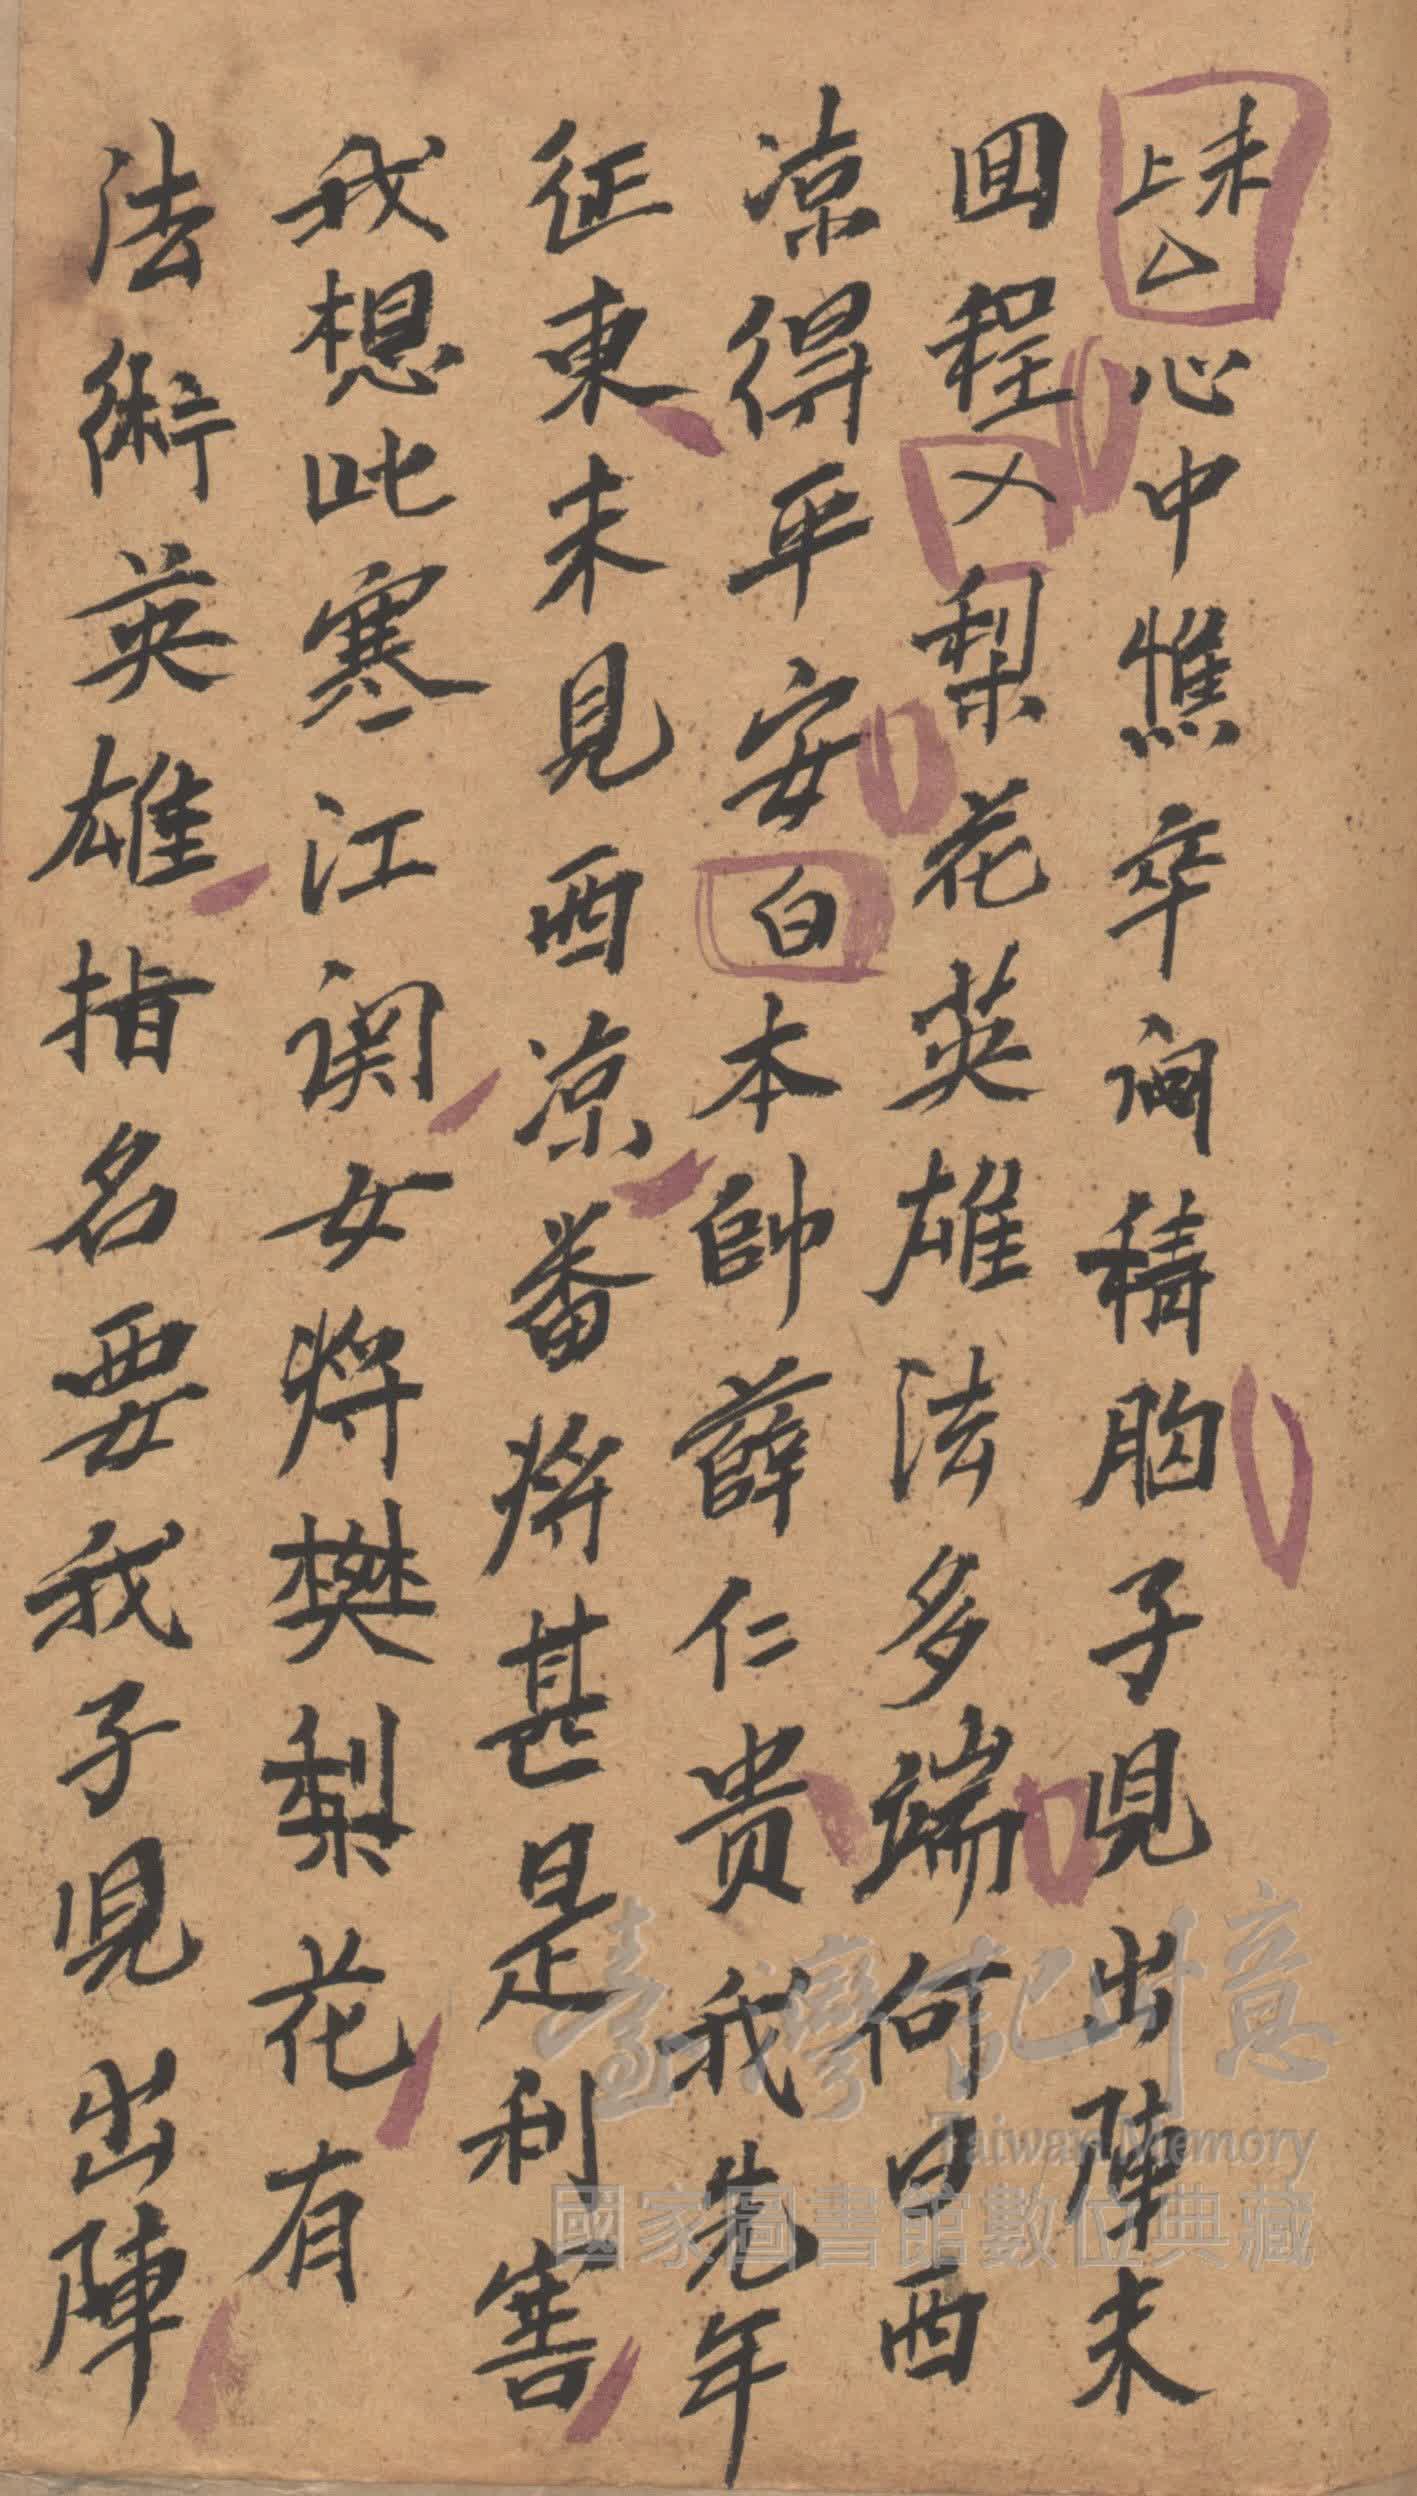 末上厶心中憔卒向積胸子児出陣未
回程乂梨花英雄法多端何日西
凉得平安白本帥薛仁贵我先年
征東未見西凉番将甚是利害
我想此寒江関女将樊梨花有
法術英雄指名要我子児出陣
臺灣記憶
Taiwan Memory
國家圖書館數位典藏